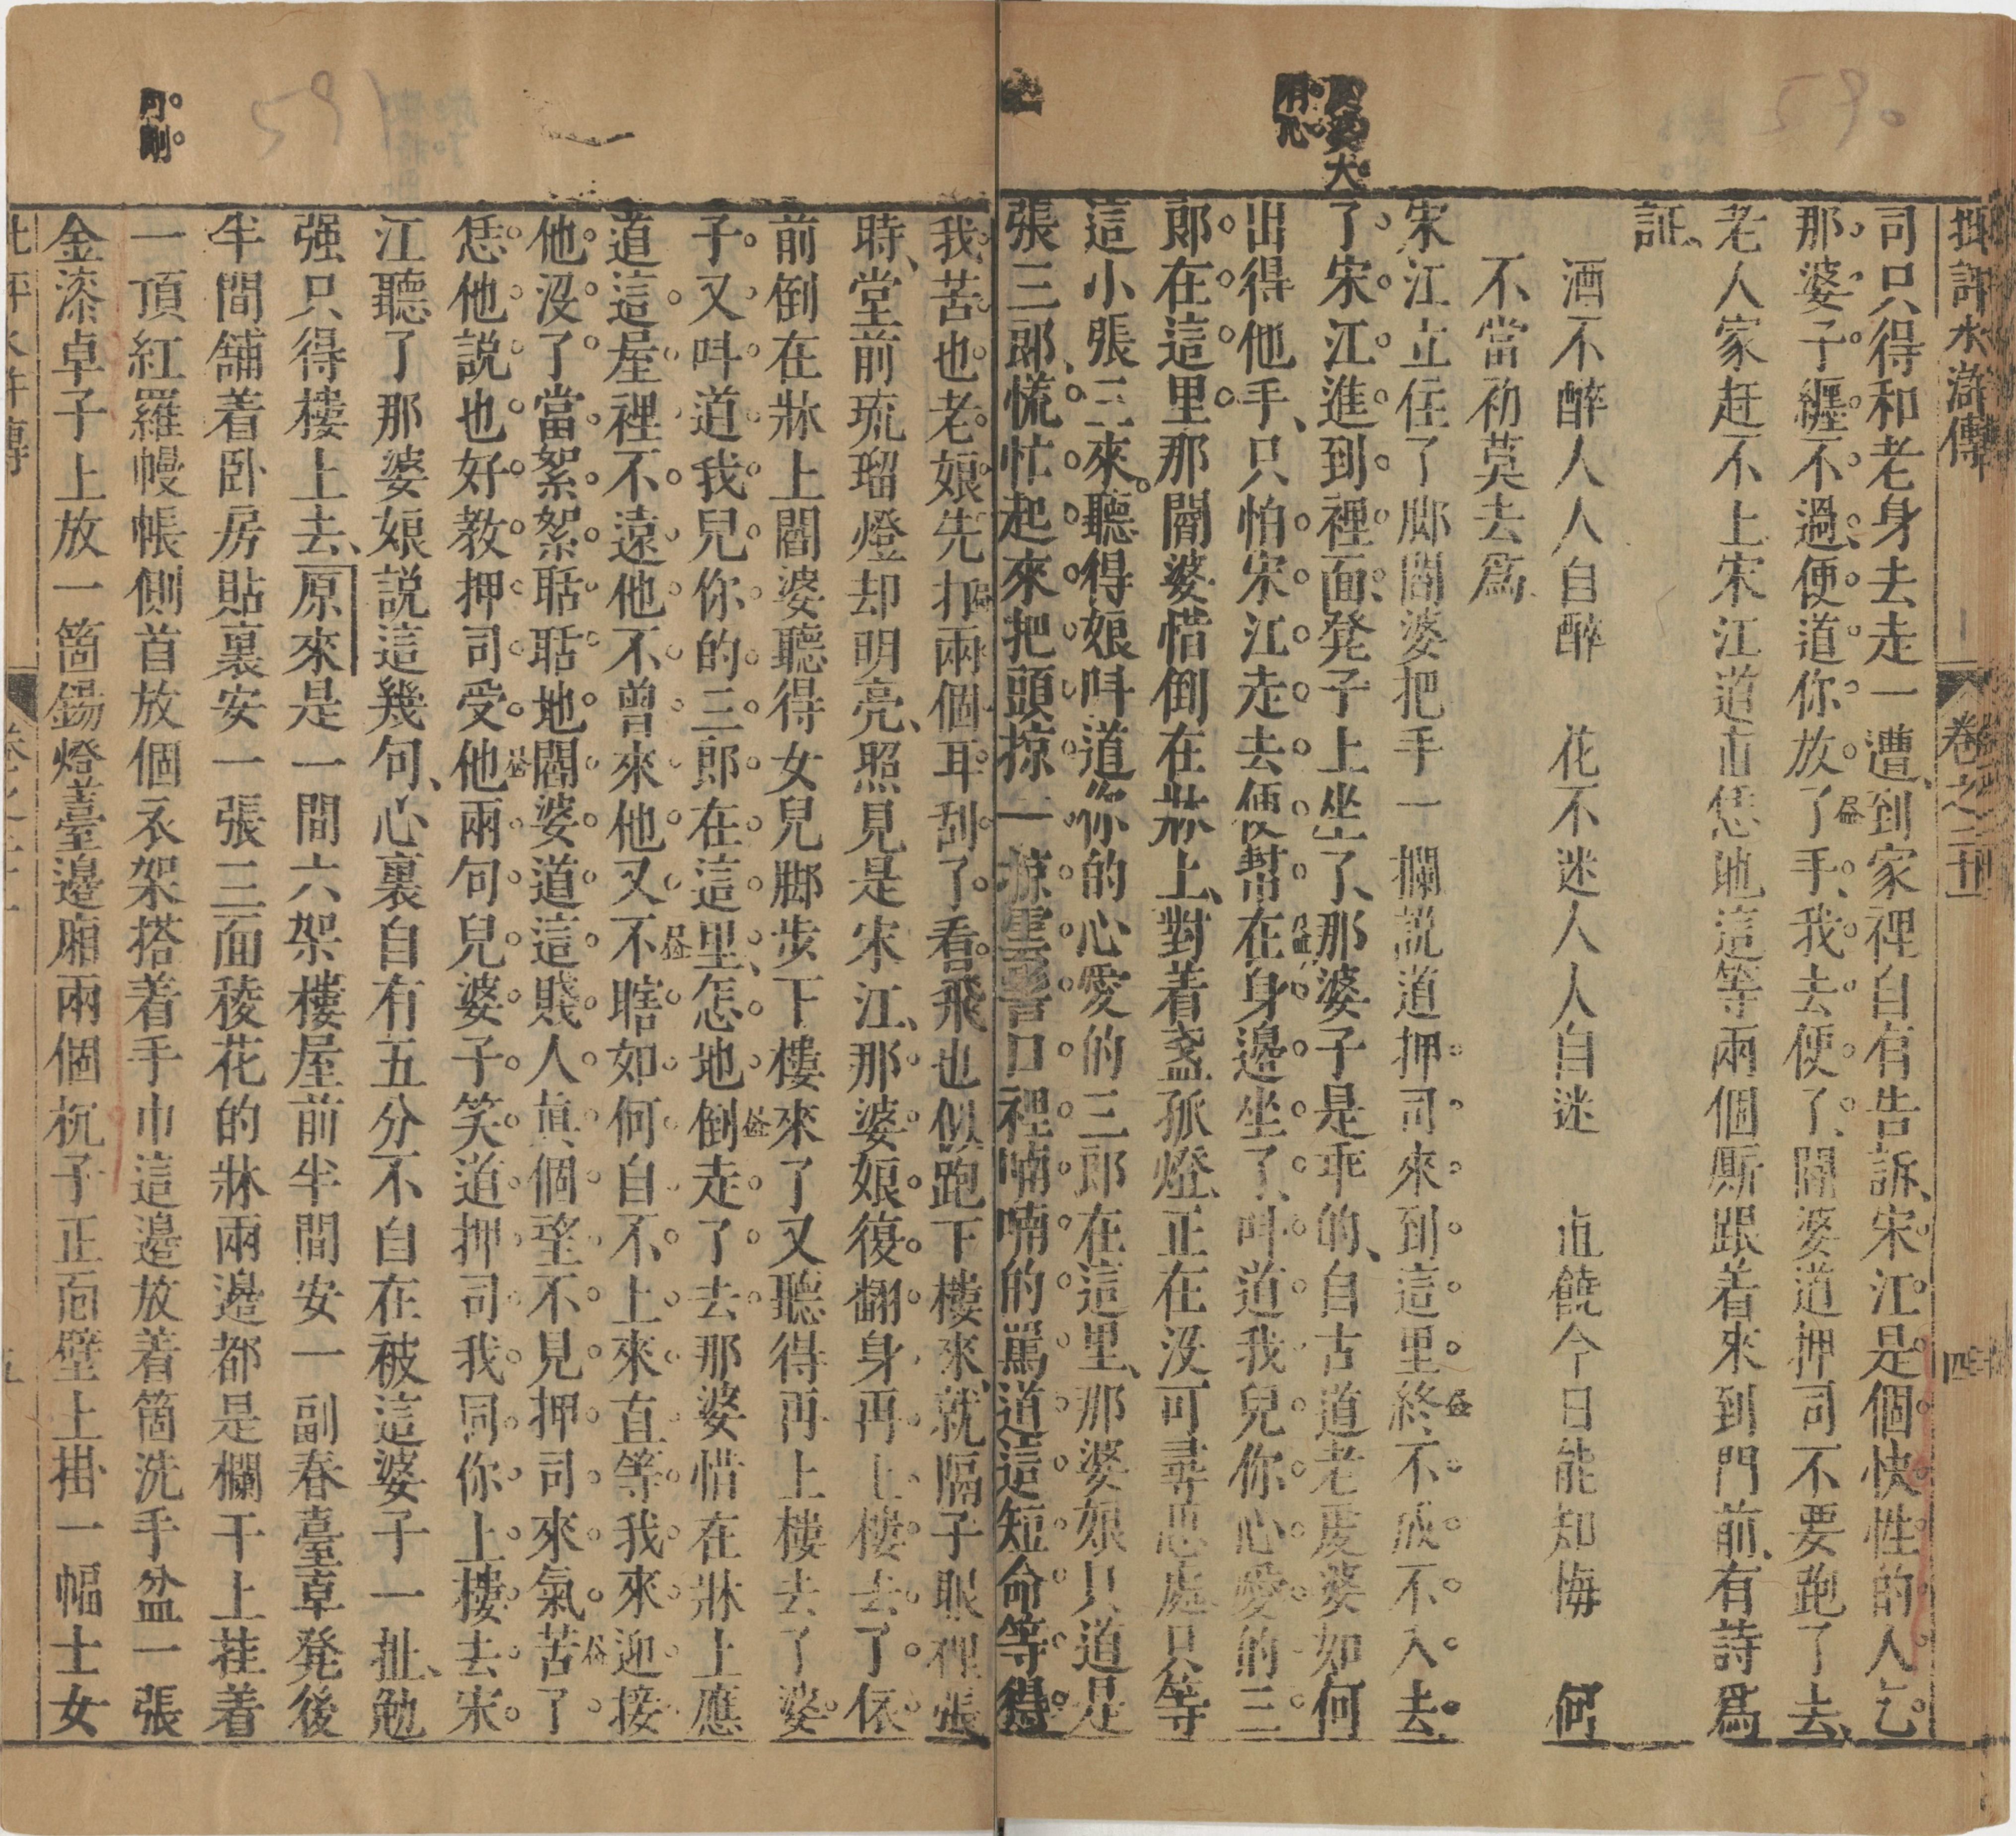 批評水滸傳
卷之二十一
四
司只得和老身去走一遭、到家裡自有告訴、宋江是個快性的人、乞
那婆子纏不過、便道你放了手、我去便了、閻婆道押司不要跑了去、
老人家赶不上宋江道直恁地這等兩個厮跟着來到門前、有詩爲
証、
酒不醉人人自醉 花不迷人人自迷 直饒今日能知悔 何
不當初莫去爲
宋江立住了脚閻婆把手一攔説道押司來到這里終不成不入去
了宋江進到裡面、凳子上坐了、那婆子是乖的、自古道老虔婆如何
出得他手、只怕宋江走去便幫在身邊坐了、呌道我兒你心愛的三
郎在這里那閻婆惜倒在牀上、對着盞孤燈、正在沒可尋思處只等
這小張三來。聽得娘呌道你的心愛的三郎在這里、那婆娘只道是
張三郎、慌忙起來把頭掠一掠雲髻口裡喃喃的罵道這短命等得
我苦也老娘先打兩個耳刮了看飛也似跑下樓來、就隔子眼裡張
時、堂前琉璃燈却明亮、照見是宋江、那婆娘復翻身再上樓去了依
前倒在牀上閻婆聽得女兒脚步下樓來了又聽得再上樓去了婆
子又呌道我兒你的三郎在這里、怎地倒走了去那婆惜在牀上應
道這屋裡不遠他不曾來他又不瞎如何自不上來直等我來迎接
他沒了當絮絮聒聒地閻婆道這賤人眞個望不見押司來氣苦了
恁他説也好教押司受他兩句兒婆子笑道押司我同你上樓去宋
江聽了那婆娘説這幾句、心裏自有五分不自在被這婆子一扯、勉
强只得樓上去、原來是一間六架樓屋前半間安一副春臺卓凳後
半間舖着卧房貼裏安一張三面稜花的牀兩邊都是欄干上挂着
一頂紅羅幔帳側首放個衣架搭着手巾這邊放着箇洗手盆一張
金漆卓子上放一箇錫燈臺邊廂兩個杌子正面壁上掛一幅士女
可刪